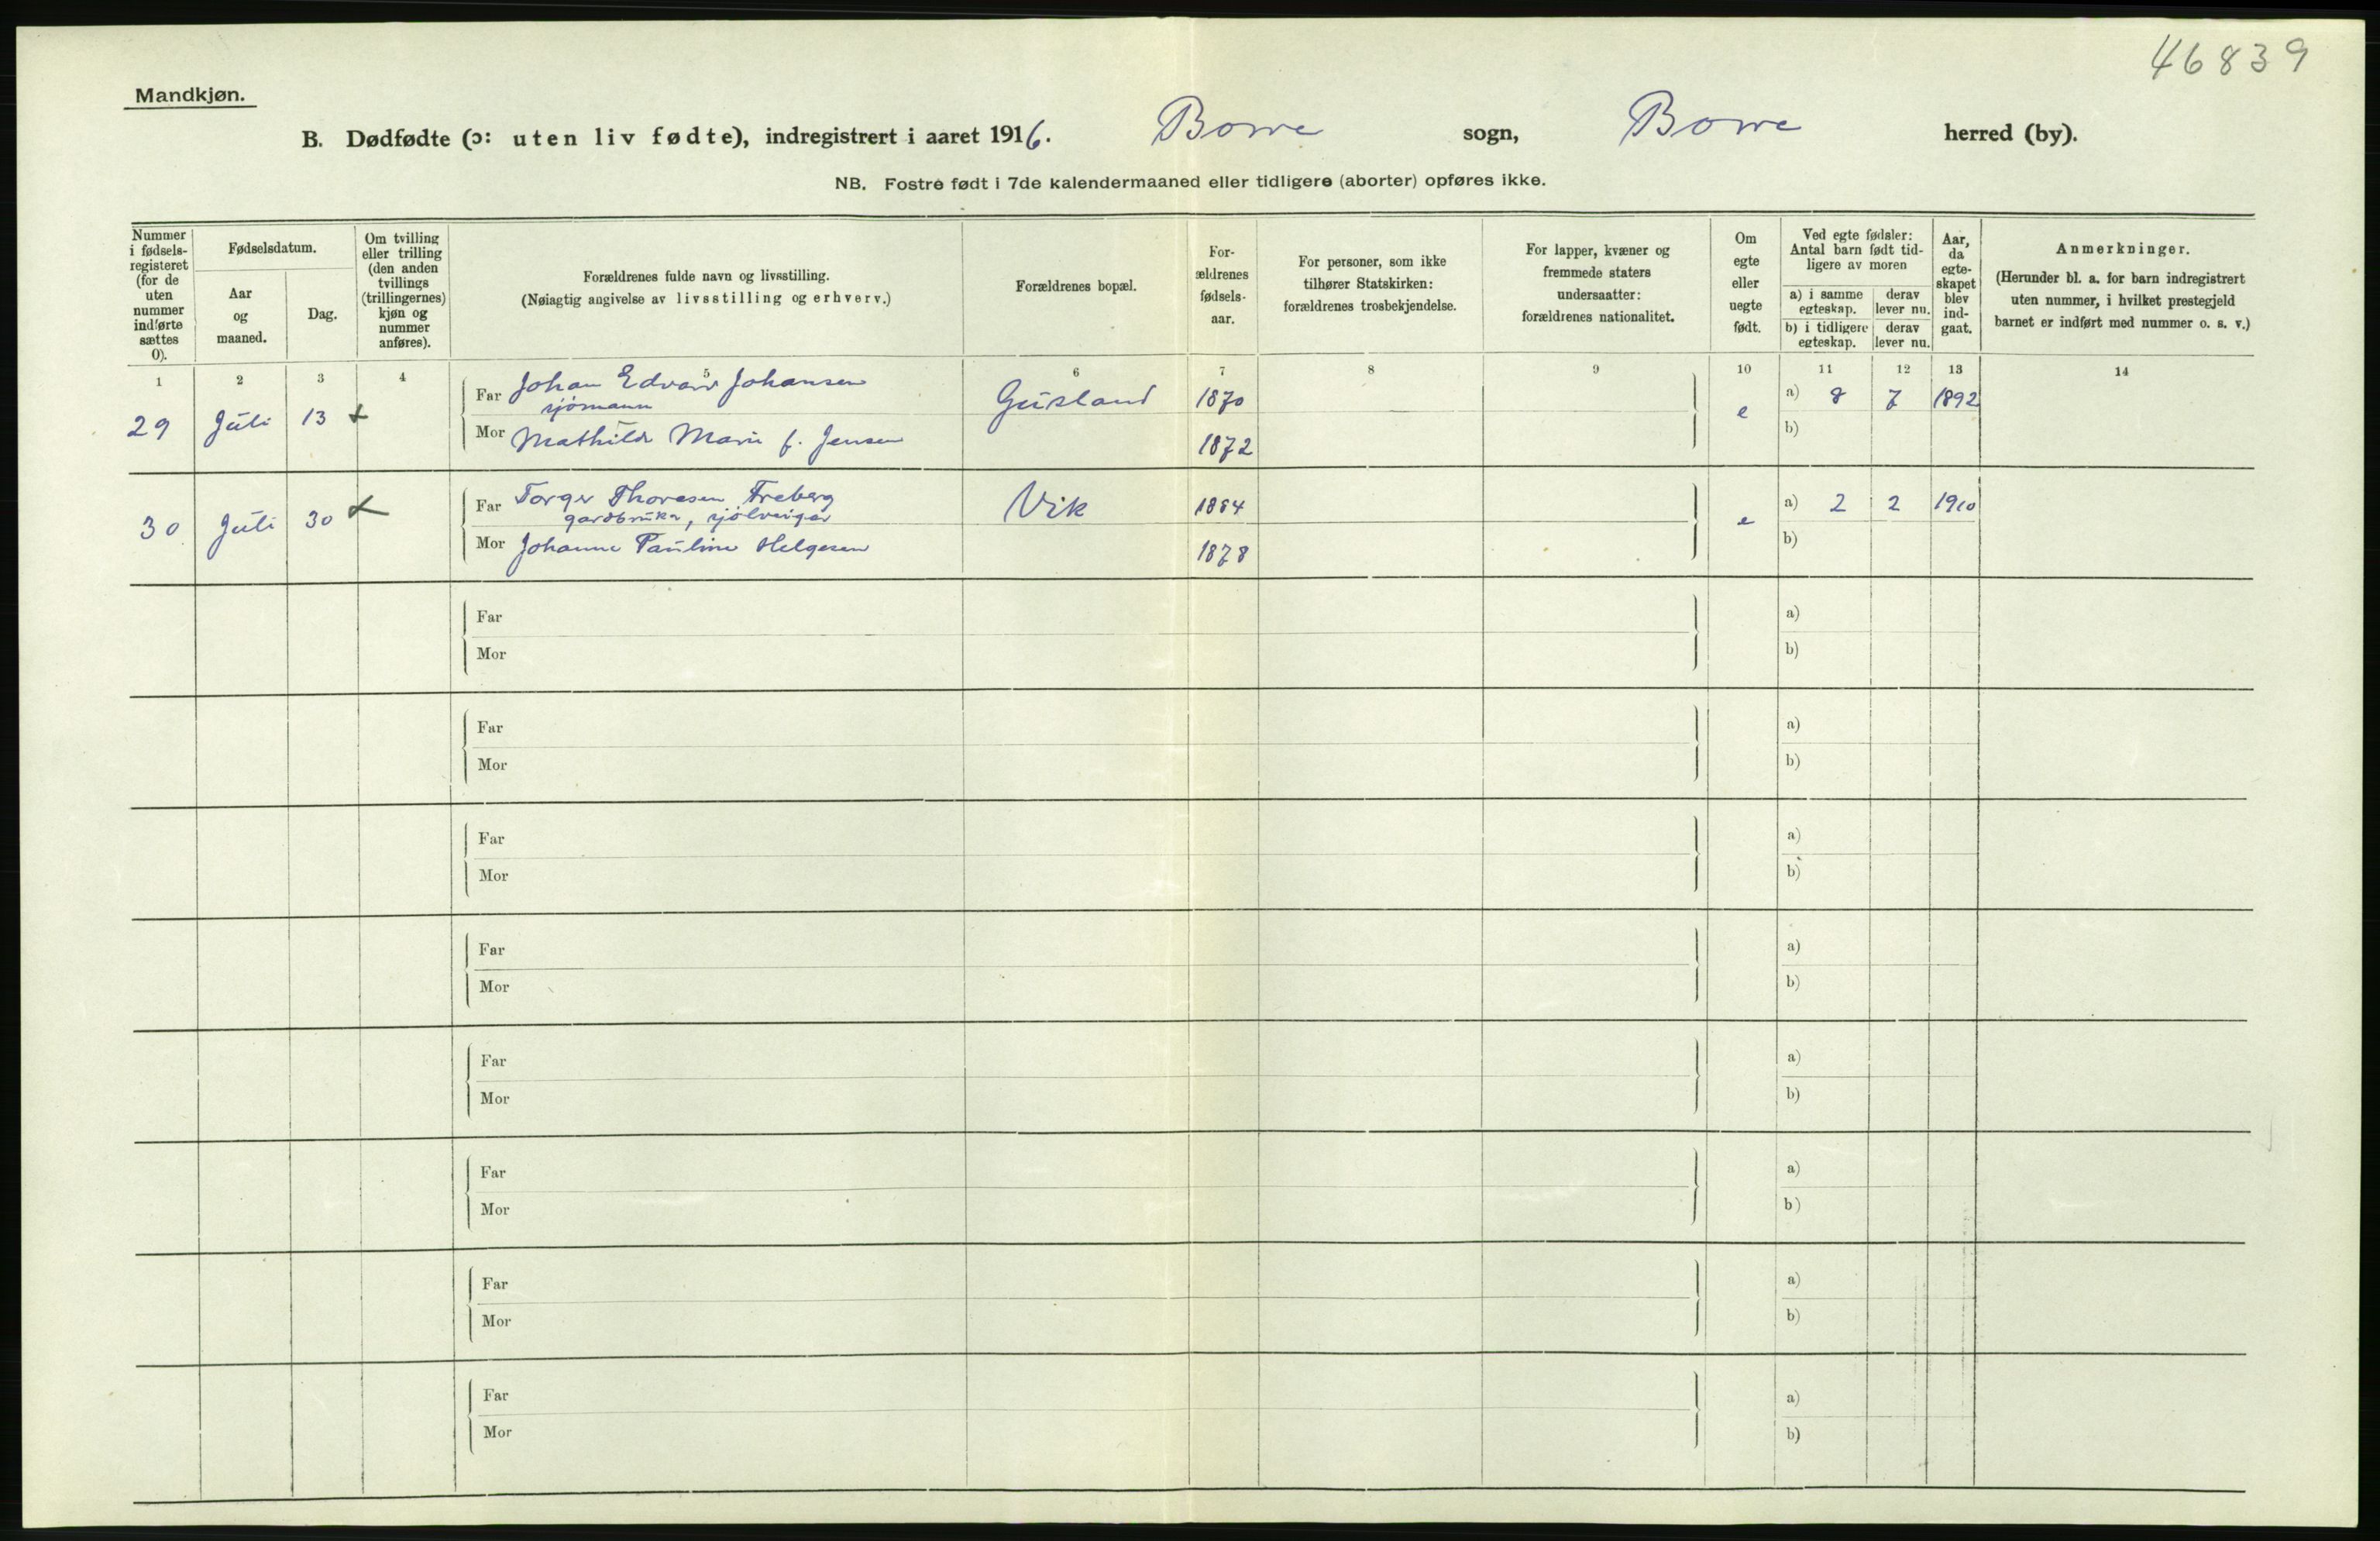 46839
Mandkjøn.
B. Dødfødte (ɔ: uten liv fødte), indregistrert i aaret 1916. Borre sogn, Borre herred (by).
NB. Fostre født i 7de kalendermaaned eller tidligere (aborter) opføres ikke.
Nummer
i fødsels-
registeret
(for de
uten
nummer
indførte
sættes
0).
Fødselsdatum.
Aar
og
maaned.
Dag.
Om tvilling
eller trilling
(den anden
tvillings
(trillingernes)
kjøn og
nummer
anføres).
Forældrenes fulde navn og livsstilling.
(Nøiagtig angivelse av livsstilling og erhverv.)
Forældrenes bopæl.
For-
ældrenes
fødsels-
aar.
For personer, som ikke
tilhører Statskirken:
forældrenes trosbekjendelse.
For lapper, kvæner og
fremmede staters
undersaatter:
forældrenes nationalitet.
Om
egte
eller
uegte
født.
Ved egte fødsler:
Antal barn født tid-
ligere av moren
a) i samme
egteskap.
derav
lever nu.
b) i tidligere
egteskap.
derav
lever nu.
Aar,
da
egte-
skapet
blev
ind-
gaat.
Anmerkninger.
(Herunder bl. a. for barn indregistrert
uten nummer, i hvilket prestegjeld
barnet er indført med nummer o. s. v.)
1 2 3 4 5 6 7 8 9 10 11 12 13 14
29 Juli 13 + Far Johan Edvard Johansen Gusland 1870 e a) 8 7 1892
sjömann
Mor Mathilde Marie f. Jensen 1872 b)
30 Juli 30 + Far Torger Thoresen Freberg Vik 1864 e a) 2 2 1910
gardbruker, sjöleieigar
Mor Johanne Pauline Helgesen 1878 b)
Far a)
Mor b)
Far a)
Mor b)
Far a)
Mor b)
Far a)
Mor b)
Far a)
Mor b)
Far a)
Mor b)
Far a)
Mor b)
Far a)
Mor b)